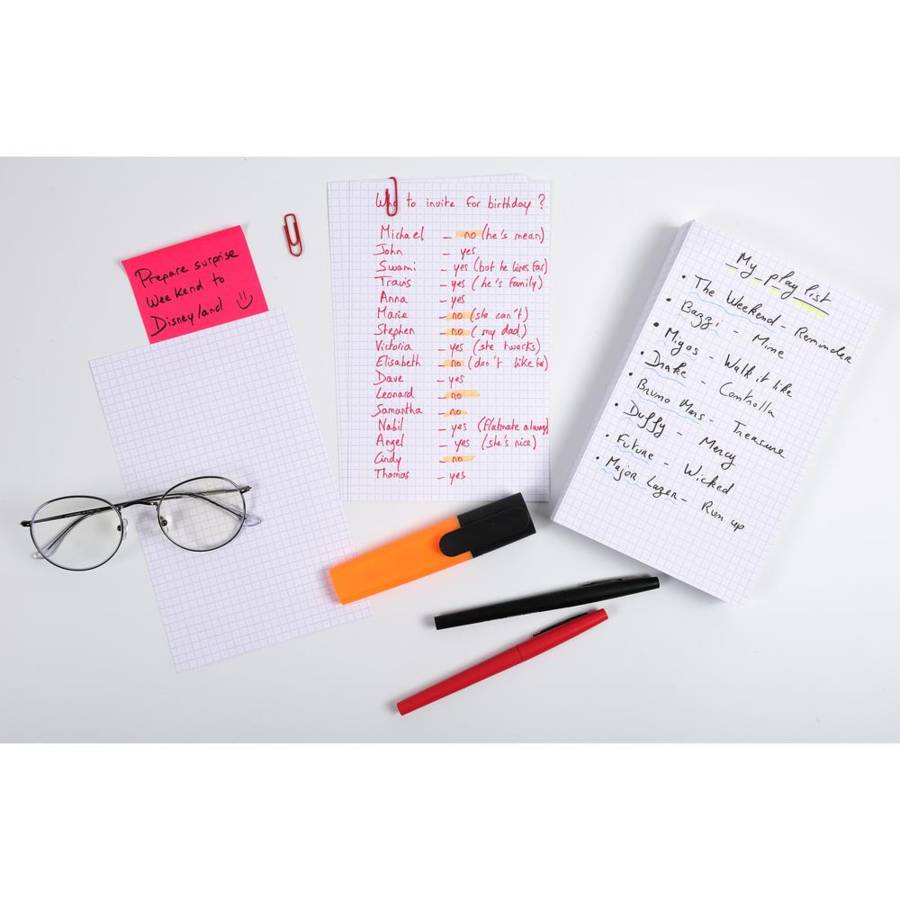 Prepare surprise
Weekend to
Disneyland
Who to invite for birthday ?
Michael – no (he's mean)
John – yes
Swami – yes (but he lives far)
Travis – yes (he's family)
Anna – yes
Marie – no (she can't)
Stephen – no (my dad)
Victoria – yes (she twerks)
Elisabeth – no (don't like her)
Dave – yes
Leonard – no
Samantha – no
Nabil – yes (flatmate always)
Angel – yes (she's nice)
Cindy – no
Thomas – yes
My play list
• The Weekend - Reminder
• Bazzi - Mine
• Migos - Walk it like
• Drake - Controlla
• Bruno Mars - Treasure
• Duffy - Mercy
• Future - Wicked
• Major Lazer - Run up